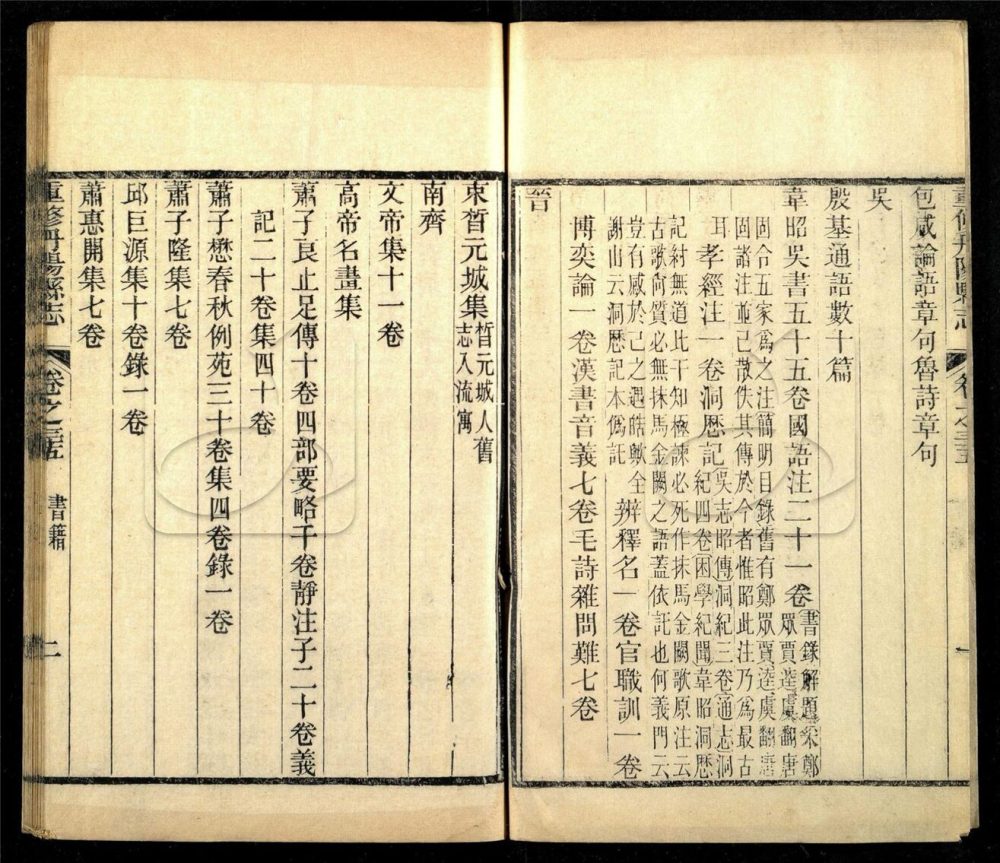 重修丹陽縣志
卷之三五
一
包咸論語章句魯詩章句
吳
殷基通語數十篇
韋昭吳書五十五卷國語注二十一卷書錄解題采鄭
眾賈逵虞翻唐
固合五家為之注簡明目錄舊有鄭眾賈逵虞翻唐
固諸注並已散佚其傳於今者惟昭此注乃為最古
耳孝經注一卷洞歷記吳志昭傳洞紀三卷通志洞
紀四卷困學紀聞韋昭洞歷
記紂無道比干知極諫必死作抹馬金闕歌原注云
古歌尚質必無抹馬金闕之語蓋依託也何義門云
豈有感於己之遇皓歟全
謝山云洞歷記本偽託辨釋名一卷官職訓一卷
博奕論一卷漢書音義七卷毛詩雜問難七卷
晉
束晳元城集晳元城人舊
志入流寓
南齊
文帝集十一卷
高帝名畫集
蕭子良止足傳十卷四部要略千卷靜注子二十卷義
記二十卷集四十卷
蕭子懋春秋例苑三十卷集四卷錄一卷
蕭子隆集七卷
邱巨源集十卷錄一卷
蕭惠開集七卷
重修丹陽縣志
卷之三五
書籍
二